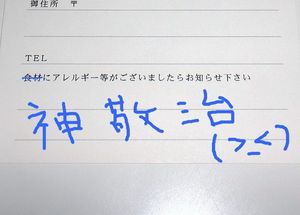 御住所 〒
TEL
食材にアレルギー等がございましたらお知らせ下さい
神散治
(>_<)